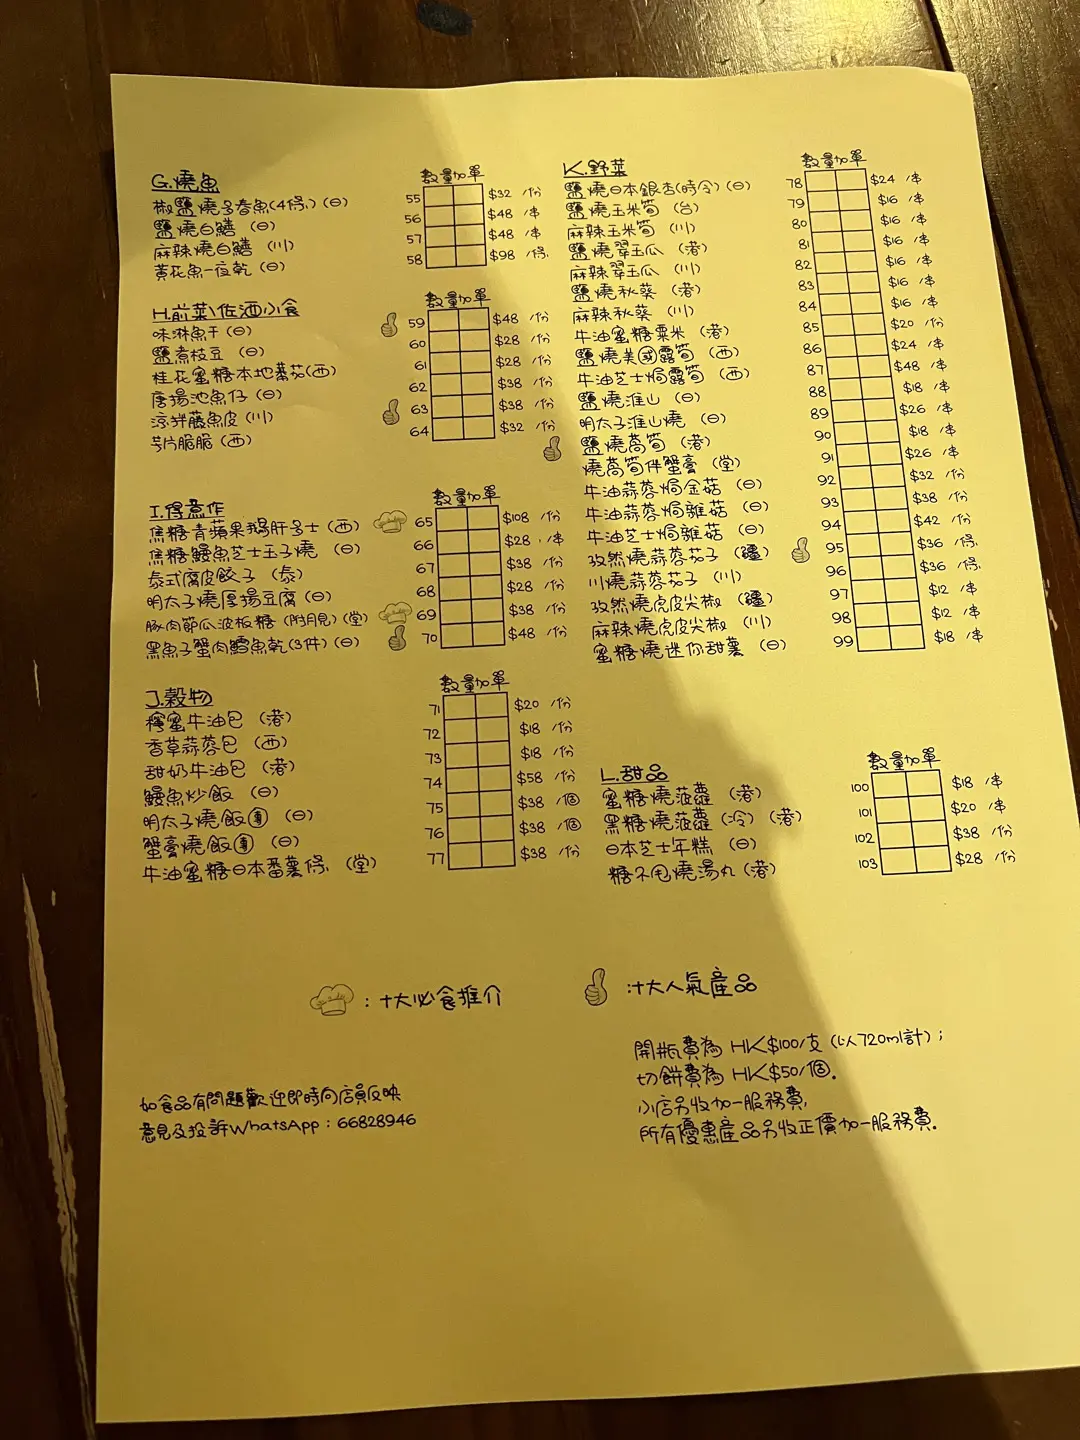 G.燒魚 數量 加單
椒鹽燒多春魚(4條)(日) 55 $32 /份
鹽燒白鱔 (日) 56 $48 /串
麻辣燒白鱔 (川) 57 $48 /串
黃花魚一夜乾 (日) 58 $98 /條
H.前菜\佐酒小食 數量 加單
味淋魚干 (日) 59 $48 /份
鹽煮枝豆 (日) 60 $28 /份
桂花蜜糖本地蕃茄(西) 61 $28 /份
唐揚池魚仔 (日) 62 $38 /份
涼拌藤魚皮 (川) 63 $38 /份
芍片脆脆 (西) 64 $32 /份
I.得意作 數量 加單
焦糖青蘋果鵝肝多士 (西) 65 $108 /份
焦糖鰻魚芝士玉子燒 (日) 66 $28 /串
泰式腐皮餃子 (泰) 67 $38 /份
明太子燒厚揚豆腐 (日) 68 $28 /份
豚肉節瓜波板糖 (附月見) (堂) 69 $38 /份
黑魚子蟹肉鱈魚乾(3件) (日) 70 $48 /份
J.穀物 數量 加單
檸蜜牛油包 (港) 71 $20 /份
香草蒜蓉包 (西) 72 $18 /份
甜奶牛油包 (港) 73 $18 /份
鰻魚炒飯 (日) 74 $58 /份
明太子燒飯團 (日) 75 $38 /個
蟹膏燒飯團 (日) 76 $38 /個
牛油蜜糖日本番薯條 (堂) 77 $38 /份
K.野菜 數量 加單
鹽燒日本銀杏(時令) (日) 78 $24 /串
鹽燒玉米筍 (台) 79 $16 /串
麻辣玉米筍 (川) 80 $16 /串
鹽燒翠玉瓜 (港) 81 $16 /串
麻辣翠玉瓜 (川) 82 $16 /串
鹽燒秋葵 (港) 83 $16 /串
麻辣秋葵 (川) 84 $16 /串
牛油蜜糖粟米 (港) 85 $20 /份
鹽燒美國露筍 (西) 86 $24 /串
牛油芝士焗露筍 (西) 87 $48 /串
鹽燒淮山 (日) 88 $18 /串
明太子淮山燒 (日) 89 $26 /串
鹽燒萵筍 (港) 90 $18 /串
燒萵筍伴蟹膏 (堂) 91 $26 /串
牛油蒜蓉焗金菇 (日) 92 $32 /份
牛油蒜蓉焗雜菇 (日) 93 $38 /份
牛油芝士焗雜菇 (日) 94 $42 /份
孜然燒蒜蓉茄子 (疆) 95 $36 /條
川燒蒜蓉茄子 (川) 96 $36 /條
孜然燒虎皮尖椒 (疆) 97 $12 /串
麻辣燒虎皮尖椒 (川) 98 $12 /串
蜜糖燒迷你甜薯 (日) 99 $18 /串
L.甜品 數量 加單
蜜糖燒菠蘿 (港) 100 $18 /串
黑糖燒菠蘿 (冷) (港) 101 $20 /串
日本芝士年糕 (日) 102 $38 /份
糖不甩燒湯丸 (港) 103 $28 /份
:十大必食推介
:十大人氣產品
開瓶費為 HK$100/支 (以720ml計);
切餅費為 HK$50/個.
小店另收加一服務費,
所有優惠產品另收正價加一服務費.
如食品有問題歡迎即時向店員反映
意見及投訴WhatsApp : 66828946